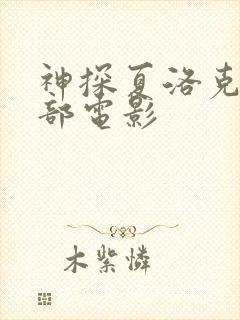 神探夏洛克
部電影
木紫憐